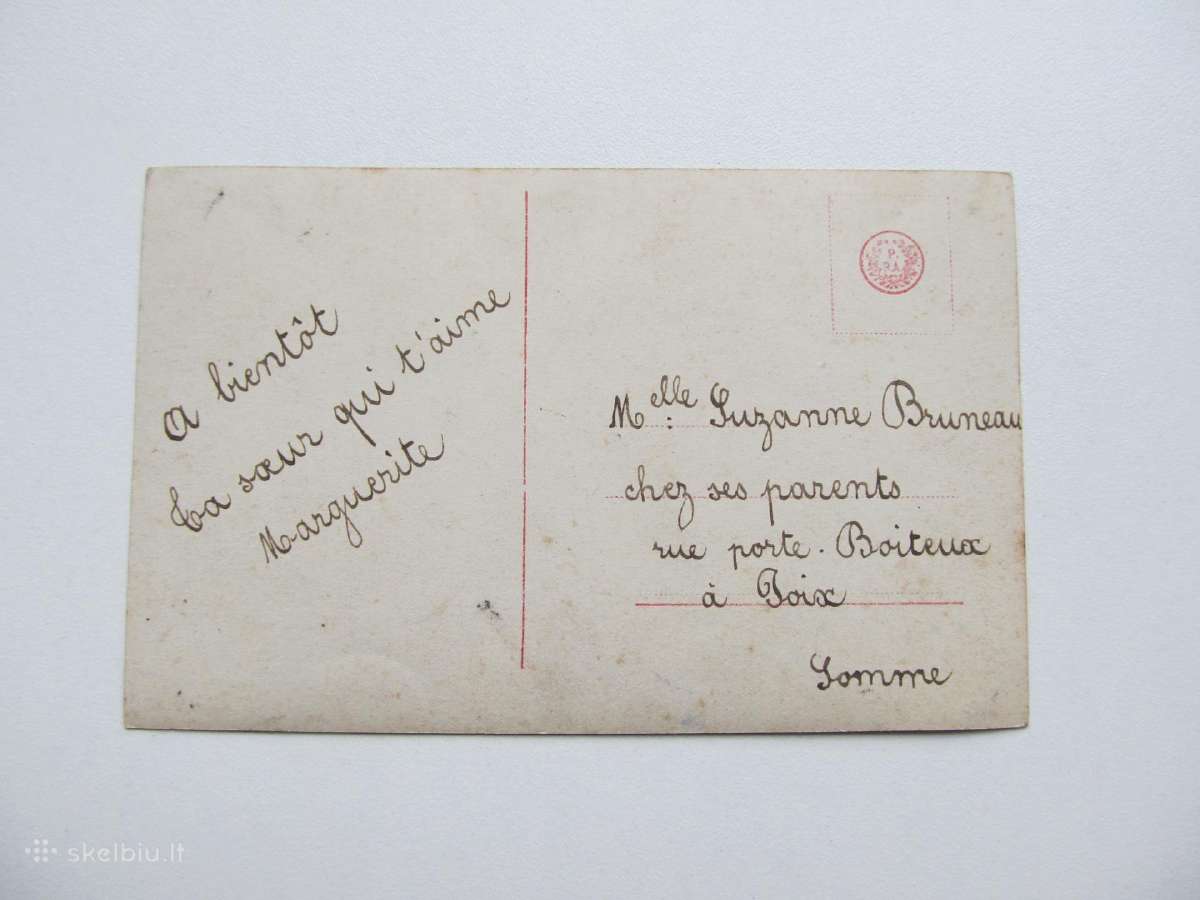 A bientôt
Ta sœur qui t'aime
Marguerite
P.
Melle: Suzanne Bruneau
chez ses parents
rue porte. Boiteux
à Poix
Somme
skelbiu.lt